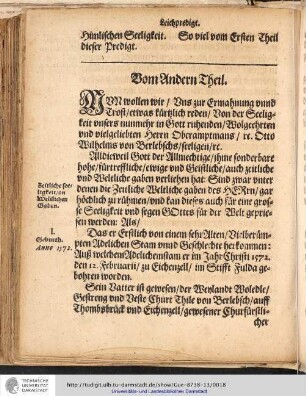 Leichpredigt.
Himlischen Seeligkeit. So viel vom Ersten Theil
dieser Predigt.
Vom Andern Theil.
NUN wollen wir / Vns zur Ermahnung vnnd
Trost / etwas kürtzlich reden / Von der Seelig-
keit vnsers nunmehr in Gott ruhenden / Wolgeehrten
vnd vielgeliebten Herrn Oberamptmans / ꝛc. Otto
Wilhelms von Berlebschs / seeligen / ꝛc.
Alldieweil Gott der Allmechtige / ihme sonderbare
hohe / fürtreffliche / ewige vnd Geistliche / auch zeitliche
vnd Weltliche gaben verliehen hat: Sind zwar vnter
denen die Zeitliche Weltliche gaben des HERrn / gar
höchlich zu rühmen / vnd kan dieses auch für eine gros-
se Seeligkeit vnd segen GOttes für der Welt geprie-
sen werden: Als /
Zeitliche see-
ligkeit / an
Weltlichen
Gaben.
I.
Geburth.
ANNO 1572.
Das er Erstlich von einem sehr Alten / Vielberüm-
pten Adelichen Stam vnnd Geschlechte herkommen:
Auß welchem Adelichen stam er im Jahr Christi 1572.
den 12. Februarii / zu Eichenzell / im Stifft Fulda ge-
bohren worden.
Sein Vatter ist gewesen / der Weylandt Woledle /
Gestreng vnd Veste Churt Thile von Berlebsch / auff
Thombsbrück vnd Eichenzell / gewesener Churfürstli-
cher
TECHNISCHE
UNIVERSITÄT
DARMSTADT
http://tudigit.ulb.tu-darmstadt.de/show/Gue-8718-13/0018
Universitäts- und Landesbibliothek Darmstadt